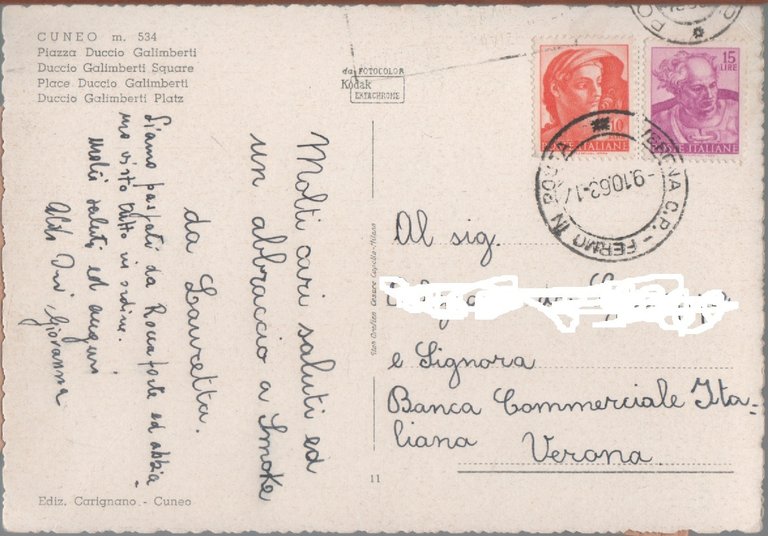 CUNEO m. 534
Piazza Duccio Galimberti
Duccio Galimberti Square
Place Duccio Galimberti
Duccio Galimberti Platz
da FOTOCOLOR
Kodak
EKTACHROME
Siamo passati da Roccaforte ed abbia-
mo visto tutto in ordine.
Molti saluti ed auguri
Giovanna
Molti cari saluti ed
un abbraccio a Smoke
da Lauretta.
Ediz. Carignano - Cuneo
Stab. Grafico Cesare Capello - Milano
11
10
POSTE ITALIANE
15
LIRE
POSTE ITALIANE
VERONA C.P. - FERMO IN POSTA
-9.10.63-1
Al sig.
e Signora
Banca Commerciale Ita-
liana Verona